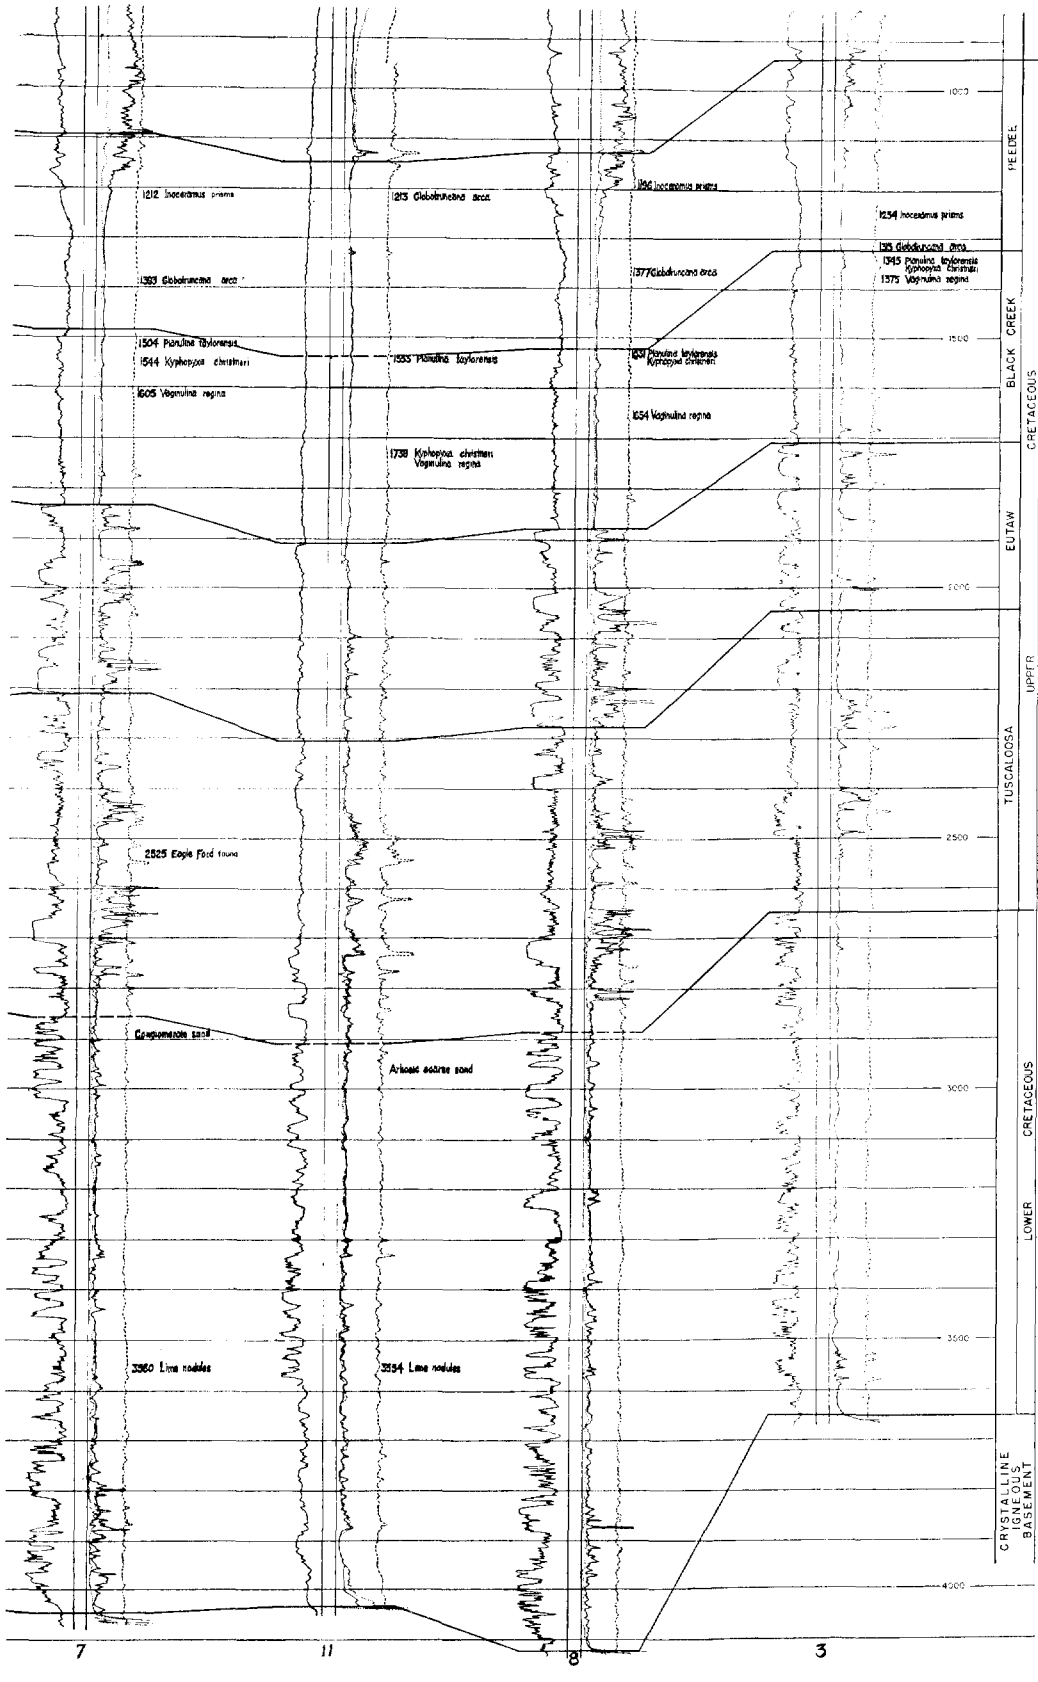 1000
PEEDEE
1212 Inoceramus prisms
1213 Globotruncana arca
1196 Inoceramus prisms
1234 Inoceramus prisms
1315 Globotruncana arca
1345 Planulina taylorensis
Kyphopyxa christneri
1375 Vaginulina regina
1393 Globotruncana arca
1377 Globotruncana arca
BLACK CREEK
CRETACEOUS
1500
1504 Planulina taylorensis
1544 Kyphopyxa christneri
1605 Vaginulina regina
Planulina taylorensis
Planulina taylorensis
Kyphopyxa christneri
1654 Vaginulina regina
1738 Kyphopyxa christneri
Vaginulina regina
EUTAW
2000
UPPER
TUSCALOOSA
2500
2525 Eagle Ford fauna
Conglomerate sand
Arkosic coarse sand
3000
CRETACEOUS
LOWER
3500
3560 Lime nodules
3554 Lime nodules
CRYSTALLINE
IGNEOUS
BASEMENT
4000
7 11 8 3